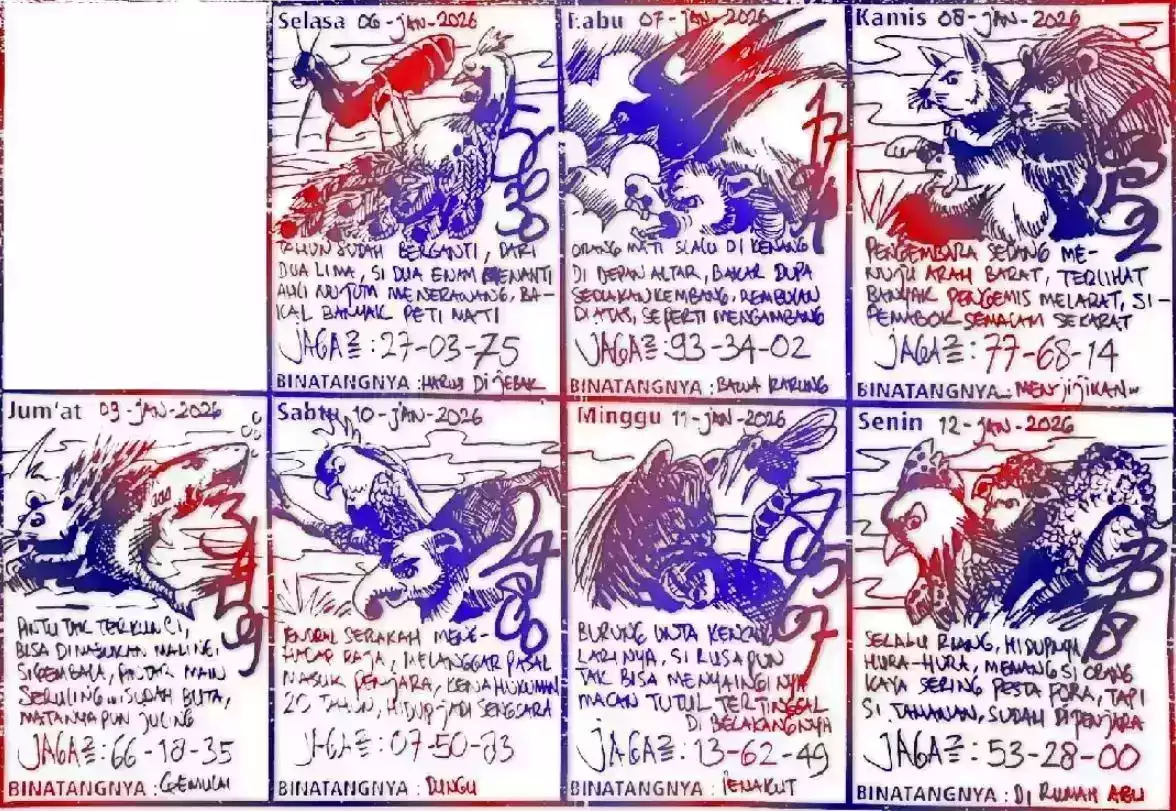 Selasa 06-JAN-2026
TAHUN SUDAH BERGANTI, DARI
DUA LIMA, SI DUA ENAM MENANTI
AHLI NUJUM MENERAWANG, BA-
KAL BANYAK PETI MATI
JAGA²: 27-03-75
BINATANGNYA : HARUS DI JEBAK
Rabu 07-JAN-2026
17
ORANG MATI SLALU DI KENANG
DI DEPAN ALTAR, BAKAR DUPA
SEDIAKAN KEMBANG, REMBULAN
DIATAS, SEPERTI MENGAMBANG
JAGA²: 93-34-02
BINATANGNYA : BAWA KARUNG
Kamis 08-JAN-2026
52
PENGEMBARA SEDANG ME-
NUJU ARAH BARAT, TERLIHAT
BANYAK PENGEMIS MELARAT, SI-
PEMABOK SEMACAM SEKARAT
JAGA²: 77-68-14
BINATANGNYA : MENJIJIKAN
Jum'at 09-JAN-2026
PINTU TAK TERKUNCI,
BISA DIMASUKAN MALING,
SIGEMBALA, PINTAR MAIN
SERULING... SUDAH BUTA,
MATANYA PUN JULING
JAGA²: 66-18-35
BINATANGNYA : GEMUK
Sabtu 10-JAN-2026
JENDRAL SERAKAH MENG-
HADAP RAJA, MELANGGAR PASAL
MASUK PENJARA, KENA HUKUMAN
20 TAHUN, HIDUP JADI SENGSARA
JAGA²: 07-50-83
BINATANGNYA : DUNGU
Minggu 11-JAN-2026
07
BURUNG UNTA KENCANG
LARINYA, SI RUSA PUN
TAK BISA MENYAINGINYA
MACAN TUTUL TERTINGGAL
DI BELAKANGNYA
JAGA²: 13-62-49
BINATANGNYA : PENAKUT
Senin 12-JAN-2026
SELALU RIANG, HIDUPNYA
HURA-HURA, MEMANG SI ORANG
KAYA SERING PESTA PORA, TAPI
SI TAHANAN, SUDAH DI PENJARA
JAGA²: 53-28-00
BINATANGNYA : DI RUMAH ABU